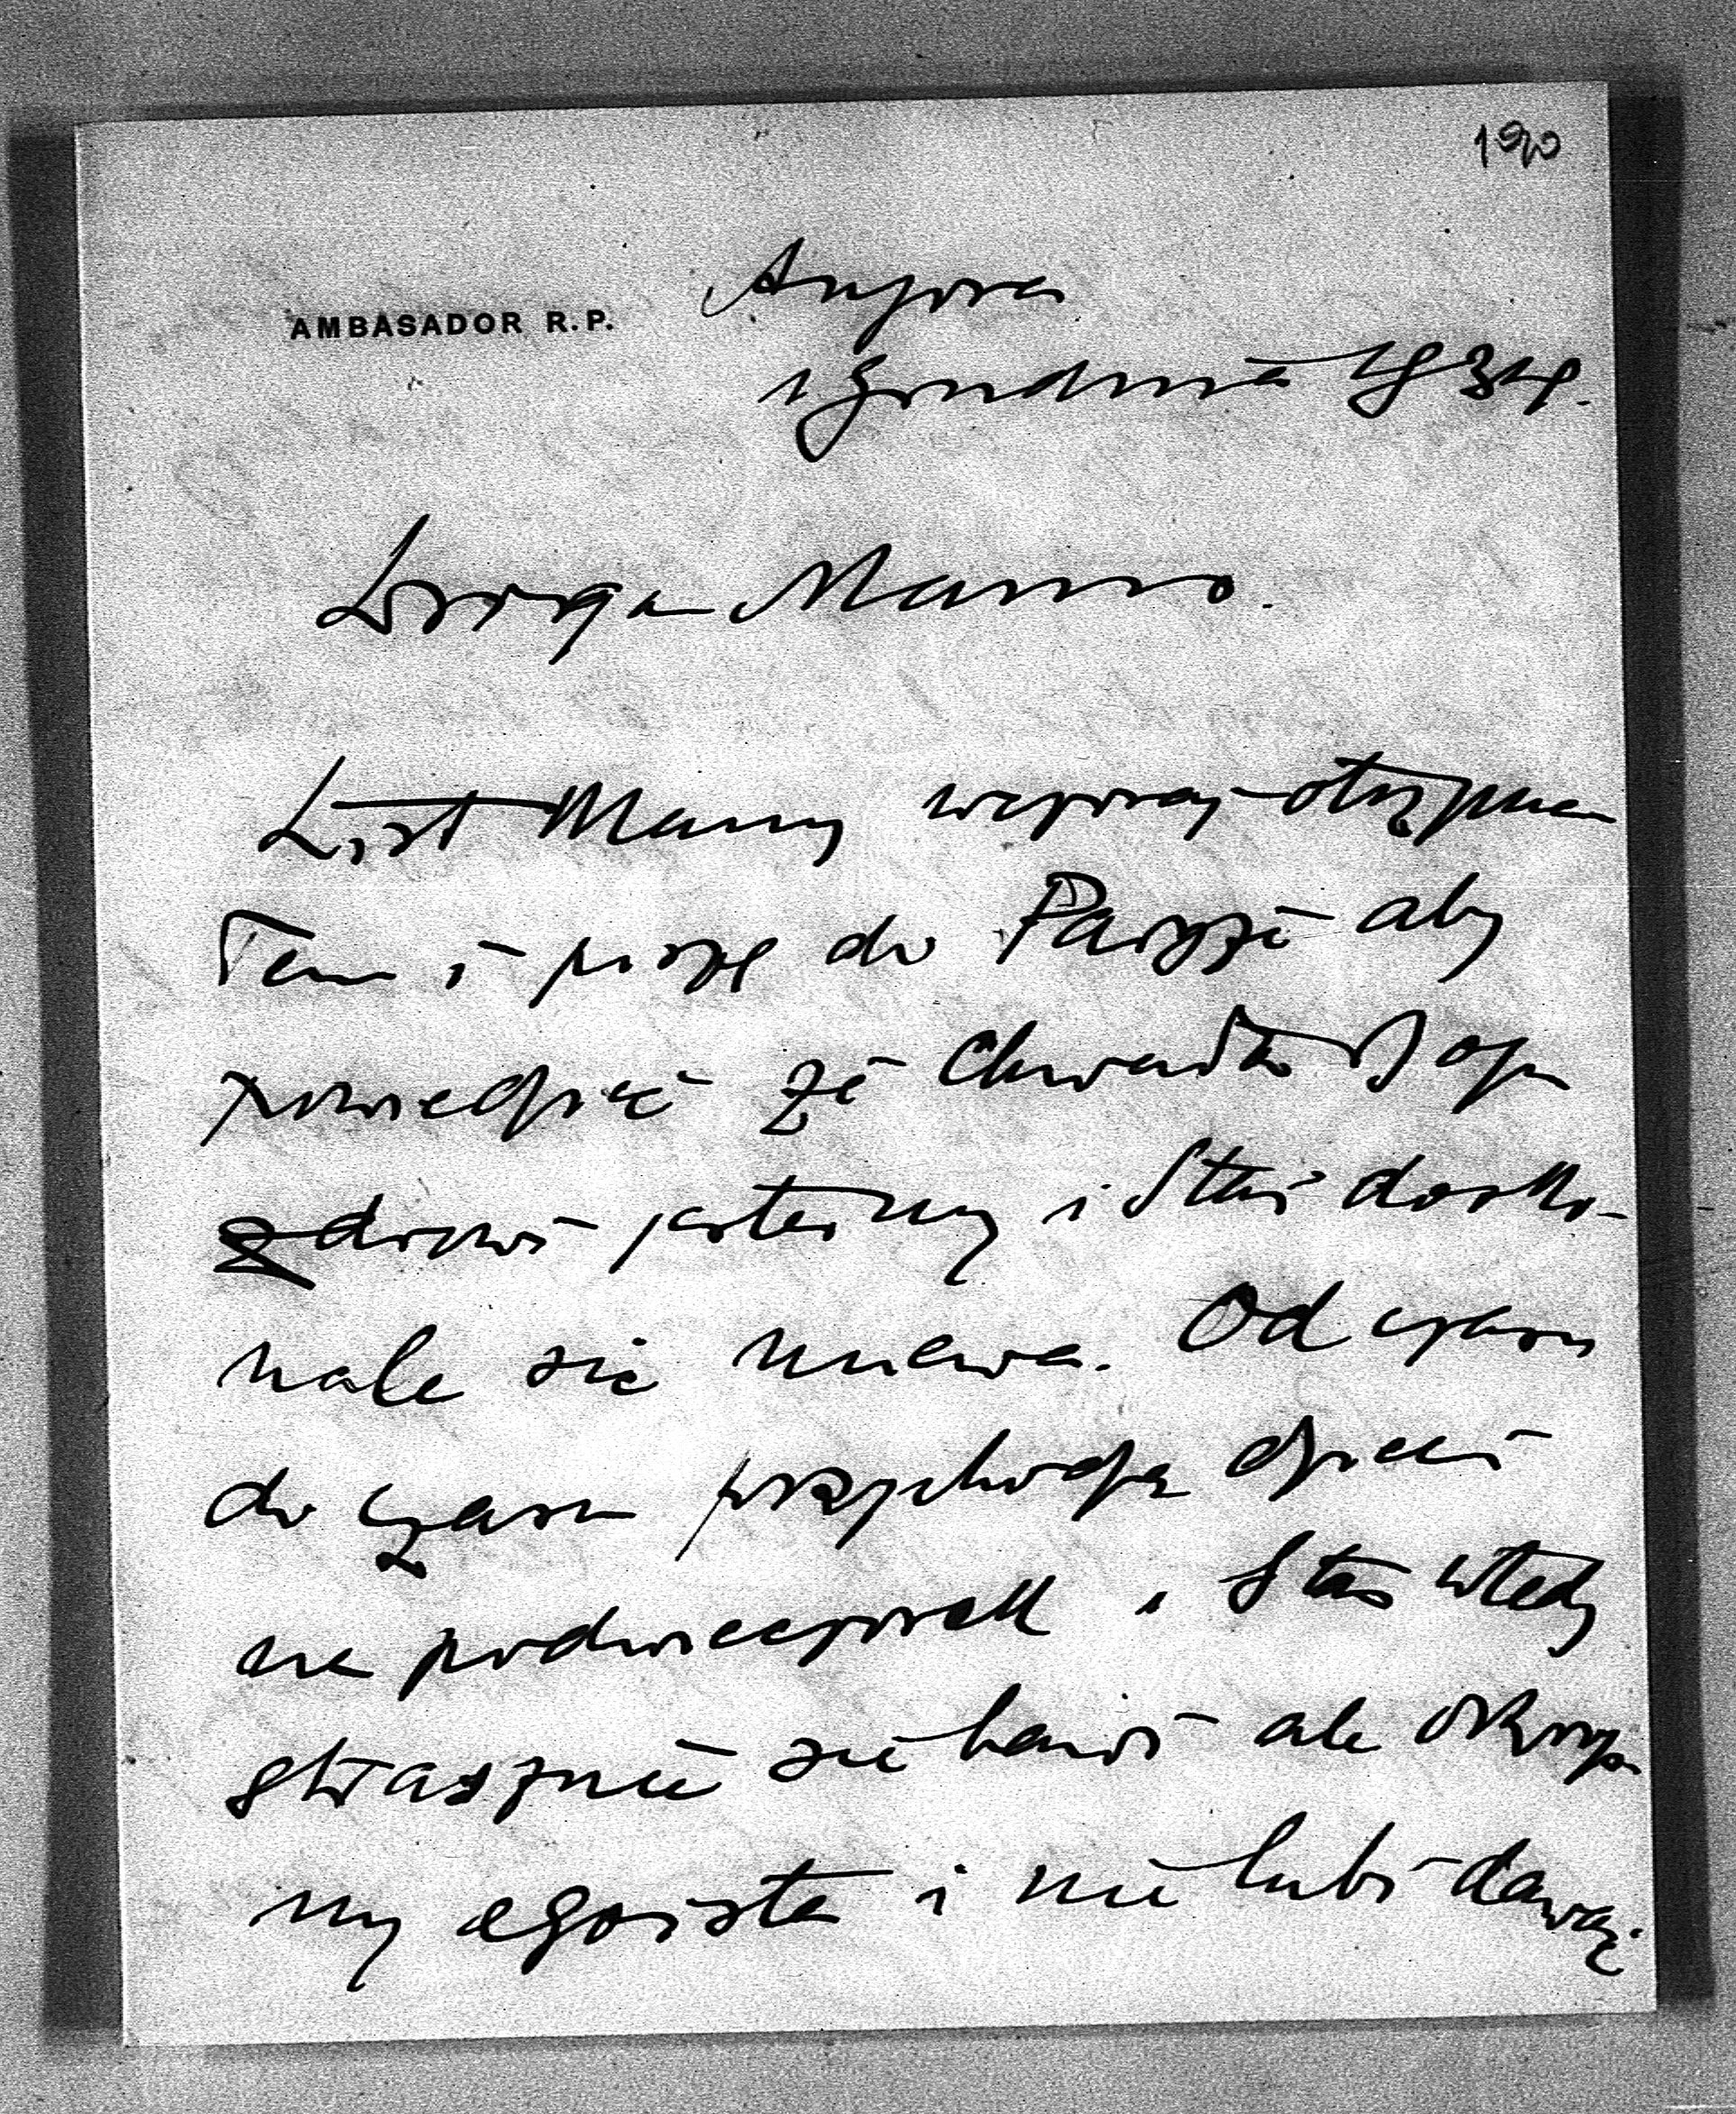 190
AMBASADOR R.P.
Angora
1 grudnia 1934.
Droga Mamo.
List Mamy wczoraj otrzyma
łem i piszę do Paryża aby
powiedzieć że Chwała Bogu
zdrowi jesteśmy i Staś dosko-
nale się miewa. Od czasu
do czasu przychodzą dzieci
na podwieczorek i Staś wtedy
strasznie się bawi ale okrop
ny egoista i nie lubi dawać